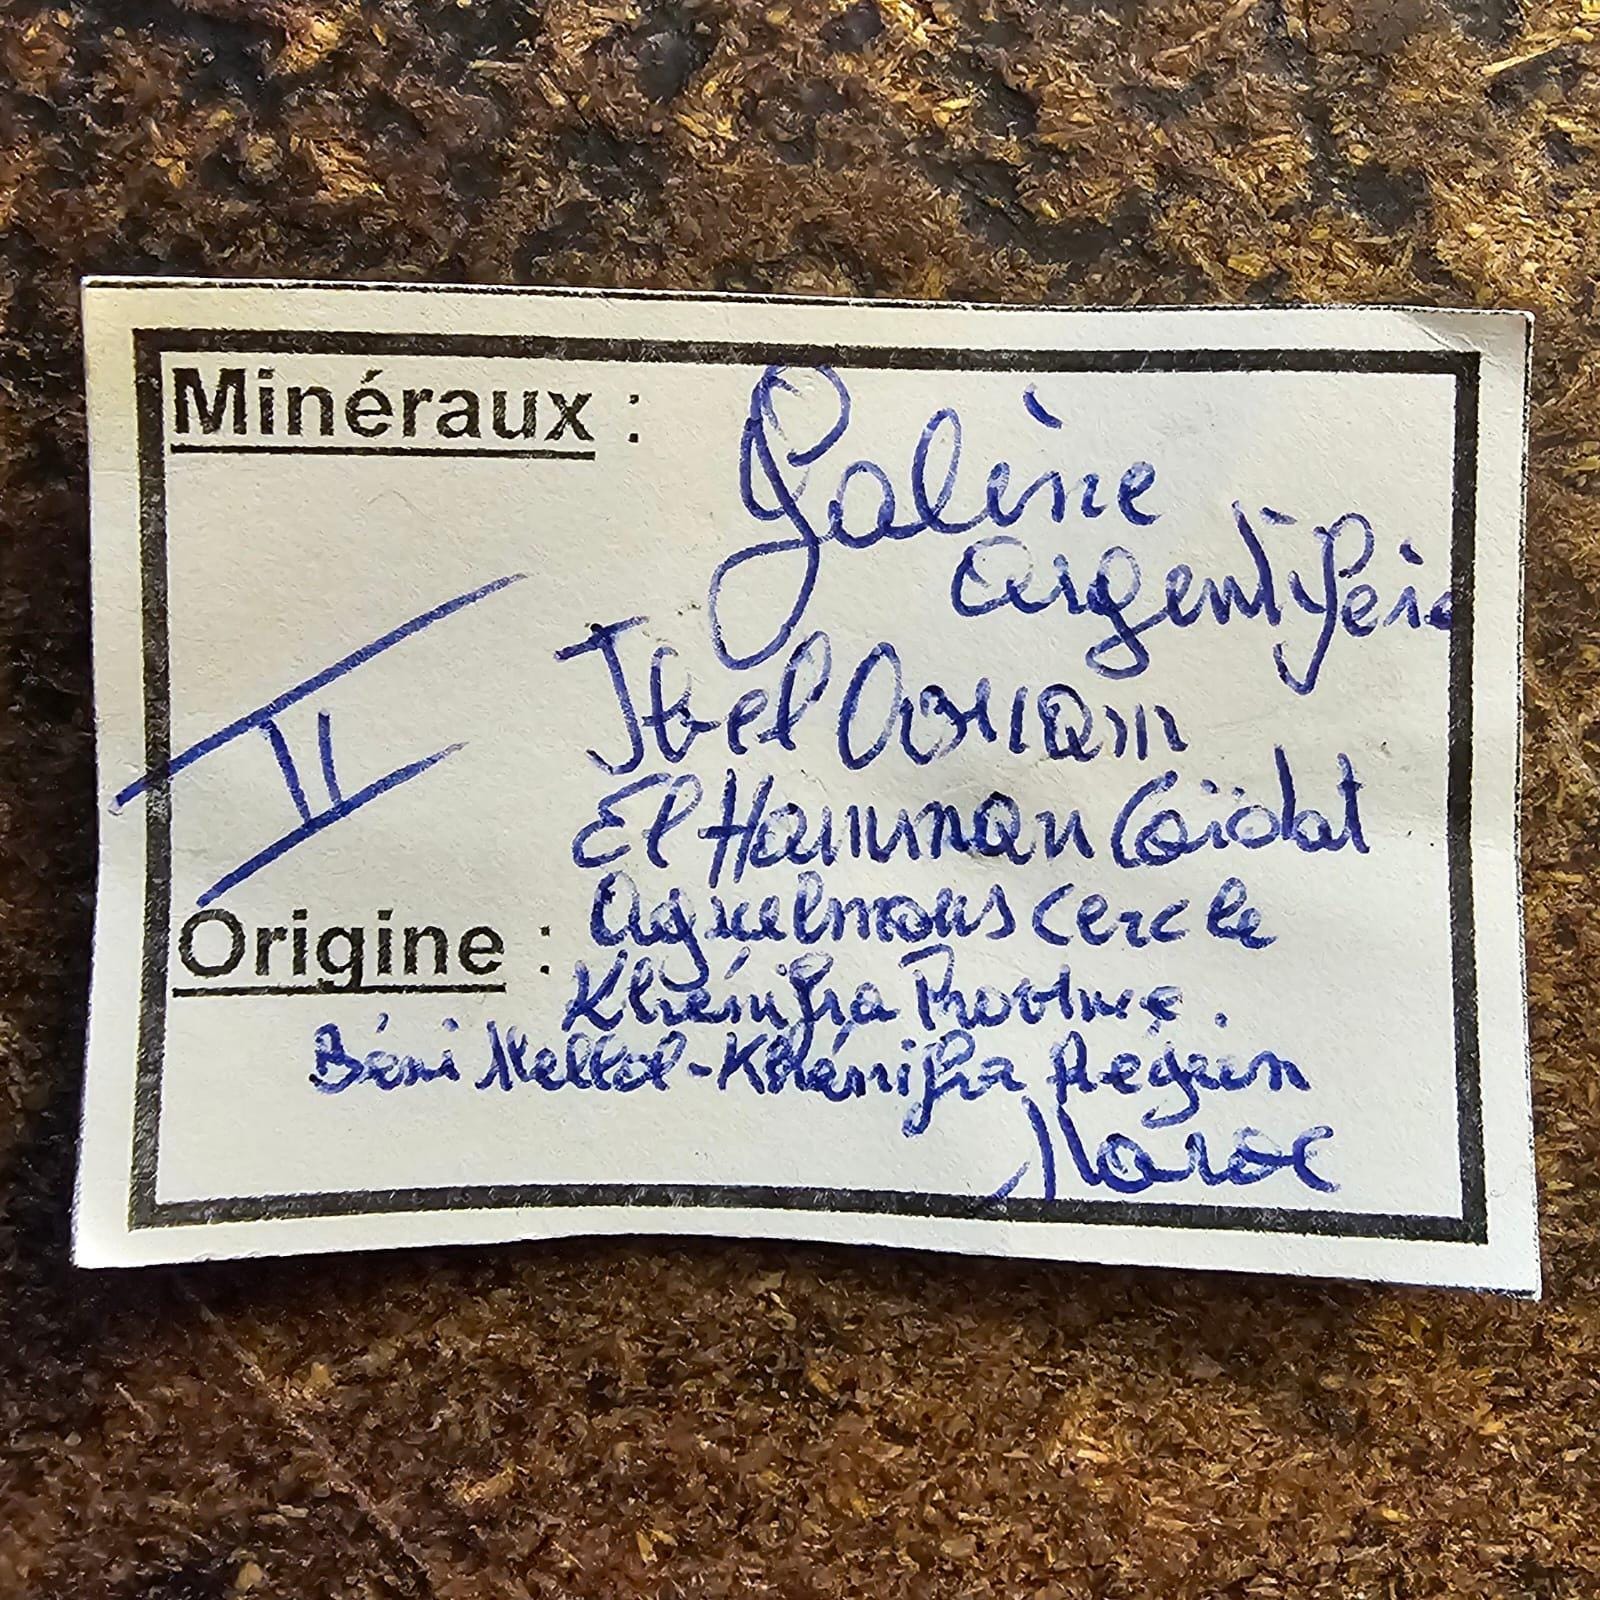 Minéraux : Galène
argentifère
II
Jbel Aouam
El Hammam Caïdat
Origine : Aguelmous cercle
Khénifra Province.
Béni Mellal-Khénifra Région
Maroc